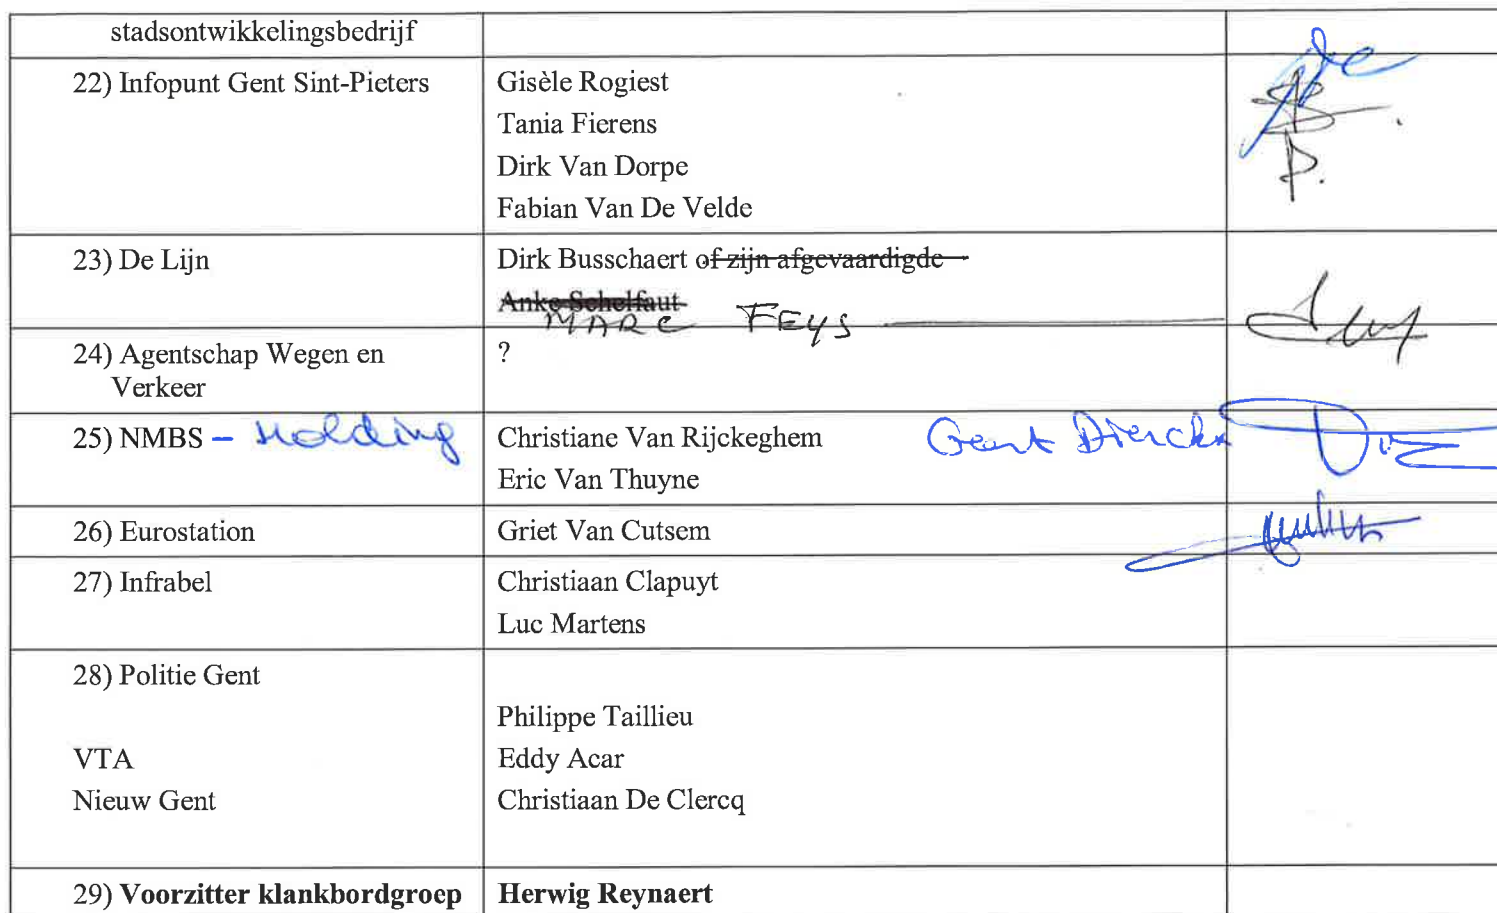 stadsontwikkelingsbedrijf
22) Infopunt Gent Sint-Pieters
Gisèle Rogiest
Tania Fierens
Dirk Van Dorpe
Fabian Van De Velde
23) De Lijn
Dirk Busschaert of zijn afgevaardigde
Anke Schelfaut
MARC FEYS
24) Agentschap Wegen en
Verkeer
?
25) NMBS – Holding
Christiane Van Rijckeghem
Geert Dierckx
Eric Van Thuyne
26) Eurostation
Griet Van Cutsem
27) Infrabel
Christiaan Clapuyt
Luc Martens
28) Politie Gent
Philippe Taillieu
VTA
Eddy Acar
Nieuw Gent
Christiaan De Clercq
29) Voorzitter klankbordgroep
Herwig Reynaert